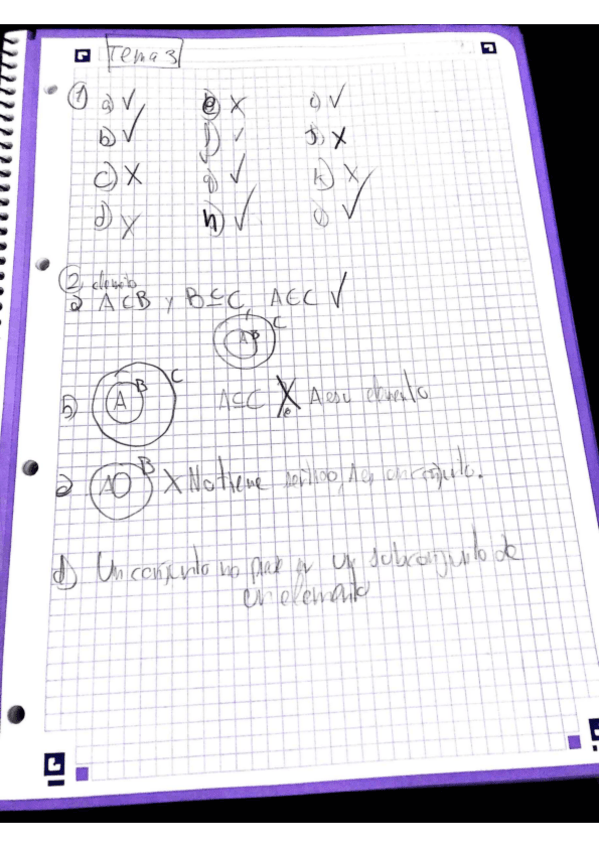 Tema 3
① a) ✓ e) X i) ✓
b) ✓ f) ✓ j) X
c) X g) ✓ k) X
d) X h) ✓ ✓
②
a A∈B y B⊆C, A∈C ✓
A B C
b) A B C A⊆C X A es elemento
A B X No tiene sentido, conjunto.
d) Un conjunto no un subconjunto de
un elemento